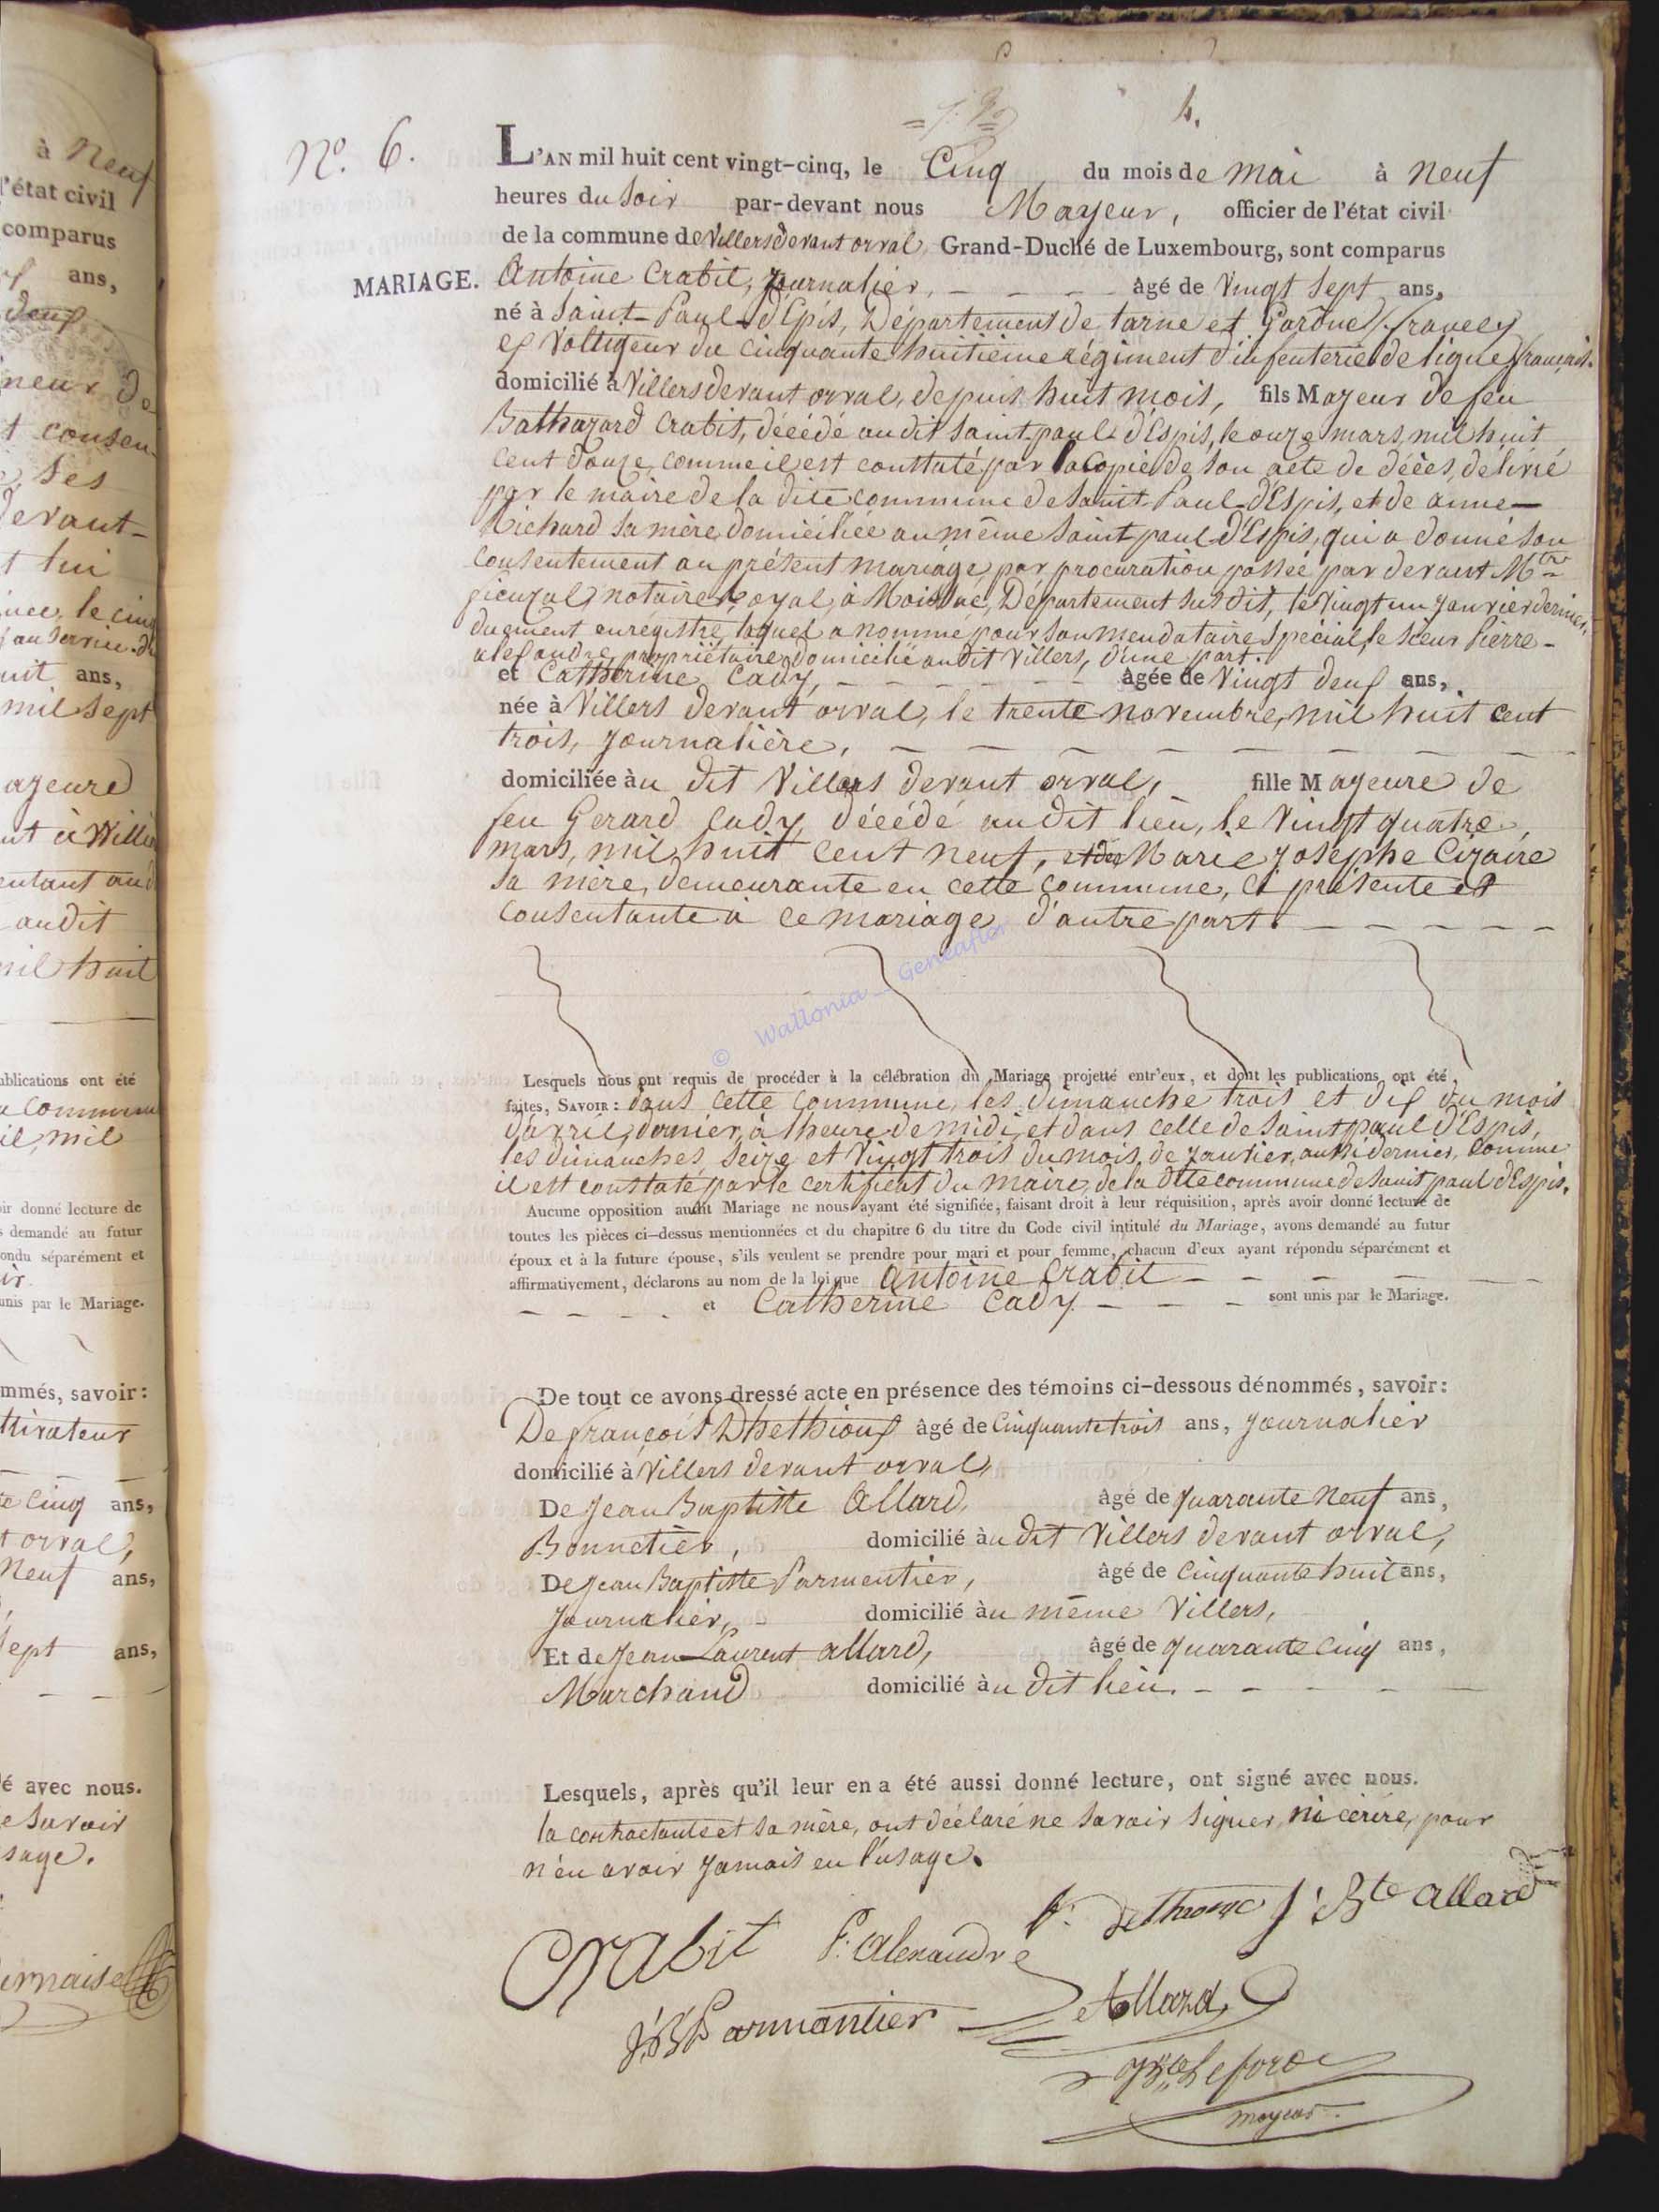 à neuf
l'état civil
comparus
ans,
deux
neur de
t consen
ses
devant-
t lui
née, le cinq
au service de
uit ans,
mil sept
ajeure
ant à Willi
entant aud
audit
mil huit
ublications ont été
commune
il, mil
oir donné lecture de
s demandé au futur
ondu séparément et
unis par le Mariage.
mmés, savoir:
ttivateur
te cinq ans,
t orval,
neuf ans,
sept ans,
é avec nous.
e savoir
sage.
ernaise
4.
N.o 6.
L'AN mil huit cent vingt-cinq, le Cinq du mois de mai à neuf
heures du soir par-devant nous Mayeur, officier de l'état civil
de la commune de Villers devant orval, Grand-Duché de Luxembourg, sont comparus
MARIAGE.
Antoine Crabit, journalier, - - - - âgé de Vingt sept ans,
né à Saint-Paul-d'Epis, Département de tarne et Garone,
ex Voltigeur du cinquante huitième régiment d'infenterie de ligne français.
domicilié à Villers devant orval, depuis huit mois, fils Majeur de feu
Bathazard Crabit, décédé audit saint-paul-d'Espis, le onze mars, mil huit
cent douze, comme il est constaté par la copie de son acte de décès, délivré
par le maire de la dite commune de saint-Paul-d'Espis, et de anne-
Richard sa mère, domiciliée au même saint-paul d'Espis, qui a donné son
consentement au présent mariage, par procuration passée par devant M.tre
picuzal, notaire royal, à Moissac, Département susdit, le Vingt un janvier dernier,
duement enregistré, laquel a nommé pour son mendataire spécial, le sieur Pierre-
alexandre, propriétaire, domicilié audit Villers, d'une part.
et Catherine Cady, - - - - - - âgée de Vingt deux ans,
née à Villers devant orval, le trente novembre, mil huit cent
trois, journalière, - - - - - - - - -
domiciliée àu dit Villers devant orval, fille Majeure de
feu Gerard Cady, décédé audit lieu, le Vingt quatre,
mars, mil huit cent neuf, et de Marie Josephe Cizaire
sa mère, demeurante en cette commune, ci présente et
consentante à ce mariage, d'autre part. - - - - -
© Wallonia _ Geneafter
Lesquels nous ont requis de procéder à la célébration du Mariage projetté entr'eux, et dont les publications ont été
faites, SAVOIR: dans cette commune, les dimanche trois et dix du mois
d'avril, dernier, à l'heure de midi, et dans celle de saint paul d'Espis,
les dimanches, seize et vingt trois du mois de janvier, aussi dernier, comme
il est constaté par le certificat du maire, de la dite commune de saint paul d'Espis.
Aucune opposition audit Mariage ne nous ayant été signifiée, faisant droit à leur réquisition, après avoir donné lecture de
toutes les pièces ci-dessus mentionnées et du chapitre 6 du titre du Code civil intitulé du Mariage, avons demandé au futur
époux et à la future épouse, s'ils veulent se prendre pour mari et pour femme, chacun d'eux ayant répondu séparément et
affirmativement, déclarons au nom de la loi que Antoine Crabit - - - - -
- - - - et Catherine Cady - - - sont unis par le Mariage.
De tout ce avons dressé acte en présence des témoins ci-dessous dénommés, savoir:
De françois Dhethioux âgé de Cinquante trois ans, journalier
domicilié à Villers devant orval,
De Jean Baptiste Allard, âgé de quarante neuf ans,
Bonnetier, domicilié àu dit Villers devant orval,
De Jean Baptiste Parmentier, âgé de Cinquante huit ans,
Journalier, - domicilié àu même Villers,
Et de Jean-Laurent allard, âgé de quarante cinq ans,
Marchand domicilié àu dit lieu. - - - - -
Lesquels, après qu'il leur en a été aussi donné lecture, ont signé avec nous.
la contractante et sa mère, ont déclaré ne savoir signer, ni écrire, pour
n'en avoir jamais eu l'usage.
Crabit P. Alexandre J. Bte Allard
JB Parmantier Allard
mayeur